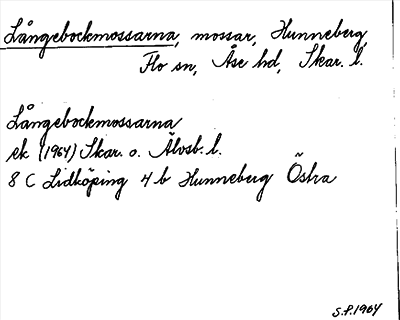 Långebockmossarna, mossar, Hunneberg,
Flo sn, Åse hd, Skar. l.
Långebockmossarna
ek (1964) Skar. o. Älvsb. l.
8 C Lidköping 4 b Hunneberg Östra
S.F. 1964